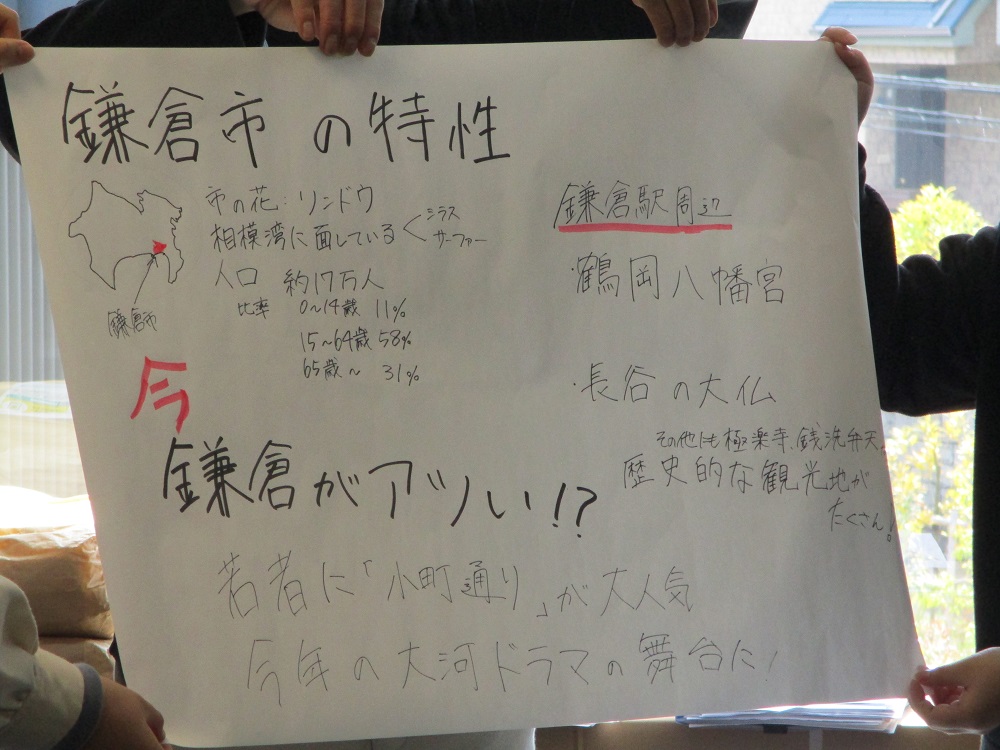 鎌倉市の特性
市の花:リンドウ
相模湾に面している<シラス
サーファー
人口 約17万人
比率 0~14歳 11%
15~64歳 58%
65歳~ 31%
鎌倉市
鎌倉駅周辺
・鶴岡八幡宮
・長谷の大仏
その他にも極楽寺、銭洗弁天。
歴史的な観光地が
たくさん!
今
鎌倉がアツい!?
若者に「小町通り」が大人気
今年の大河ドラマの舞台に!